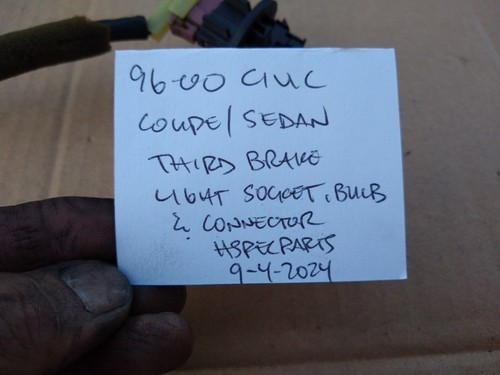 96-00 CIVIC
COUPE/SEDAN
THIRD BRAKE
LIGHT SOCKET, BULB
& CONNECTOR
HSPECPARTS
9-4-2024